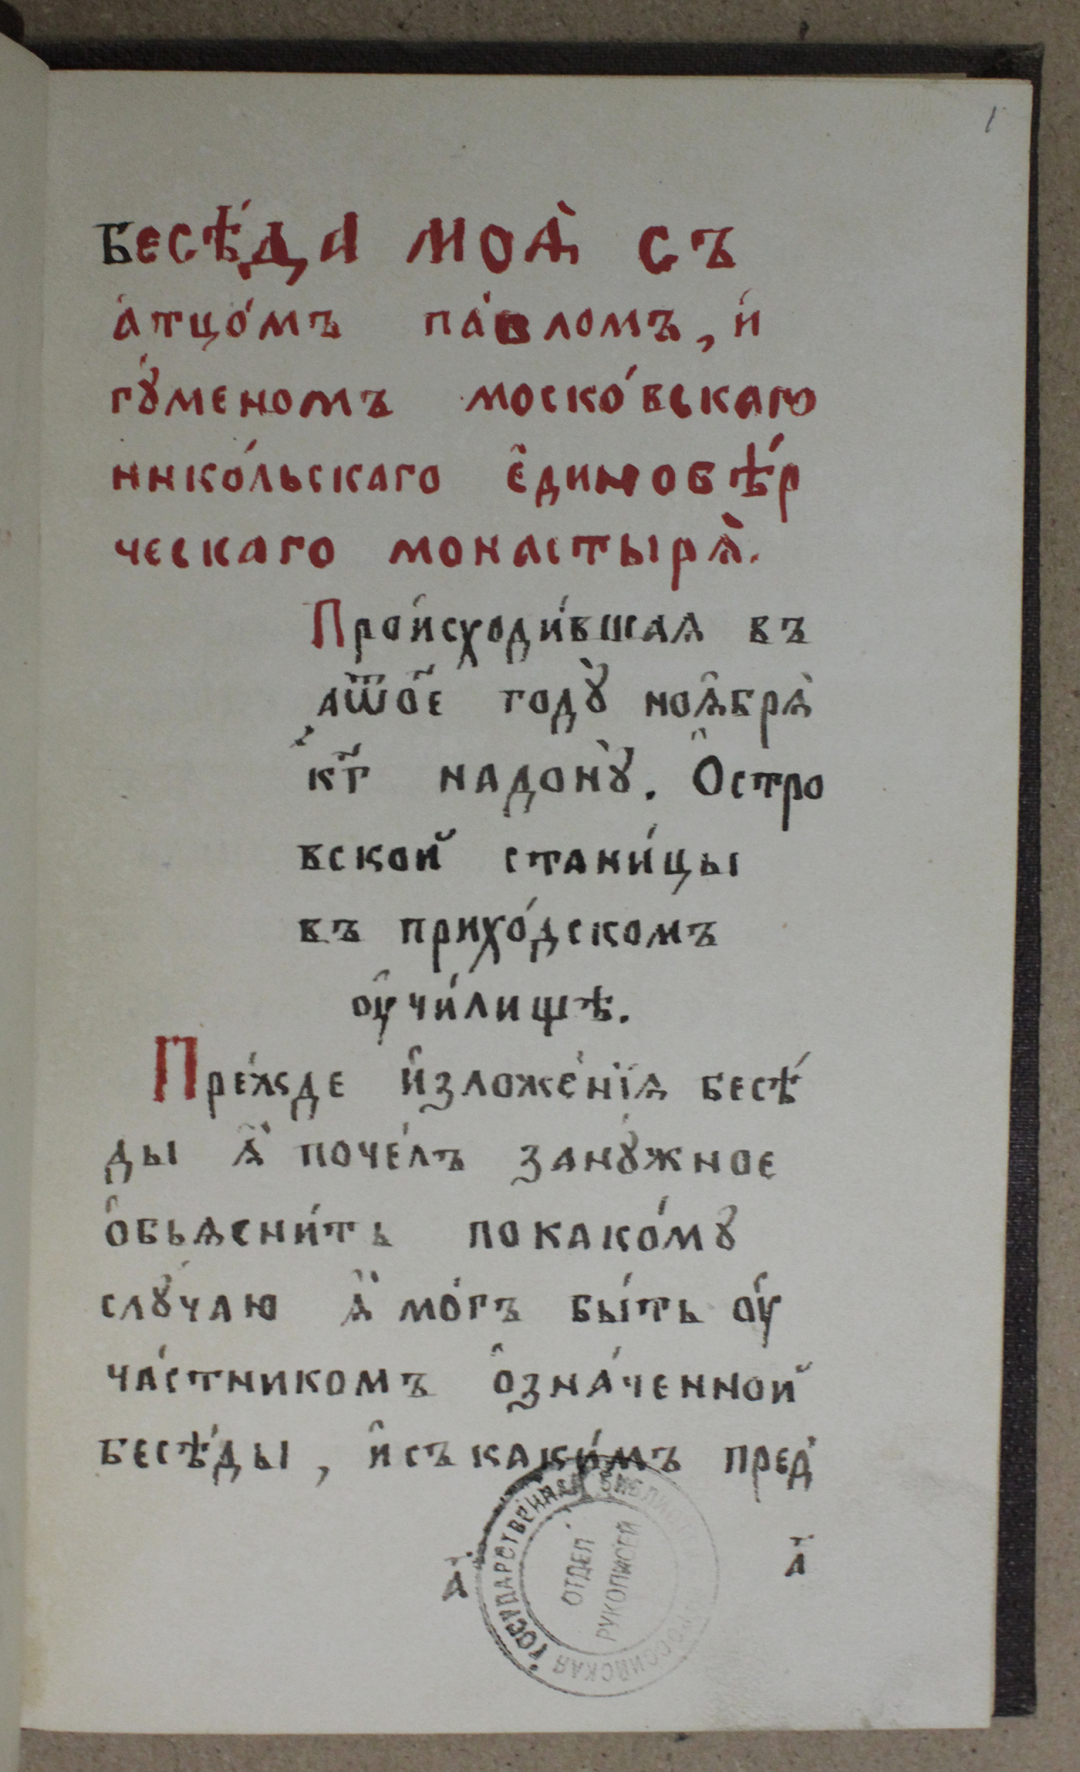 1
Бесѣ́да моѧ̀ съ
а҆тцо́мъ па́вломъ, и҆
гꙋ́меномъ моско́вскаго
нико́льскаго є҆диновѣ́р
ческаго монастырѧ̀.
Прои́сходи́вшая въ
аѿо҃е годꙋ̀ ноѧ҆брѧ̀
к҃г надонꙋ̀. О҆стро
вской стани́цы
въ прихо́дскомъ
оу҆чи́лищѣ.
Пре́жде и҆зложе́нїѧ бесѣ́
ды ѧ҆̀ поче́лъ занꙋ́жное
о҆бьѧсни́ть покако́мꙋ
слꙋ́чаю ѧ҆̀ мо́гъ бы́ть оу҆
ча́стникомъ о҆зна́ченной
бесѣ́ды, и҆съ каки́мъ пред
а҃ а҃
РОССИЙСКАЯ ГОСУДАРСТВЕННАЯ БИБЛИОТЕКА
ОТДЕЛ
РУКОПИСЕЙ